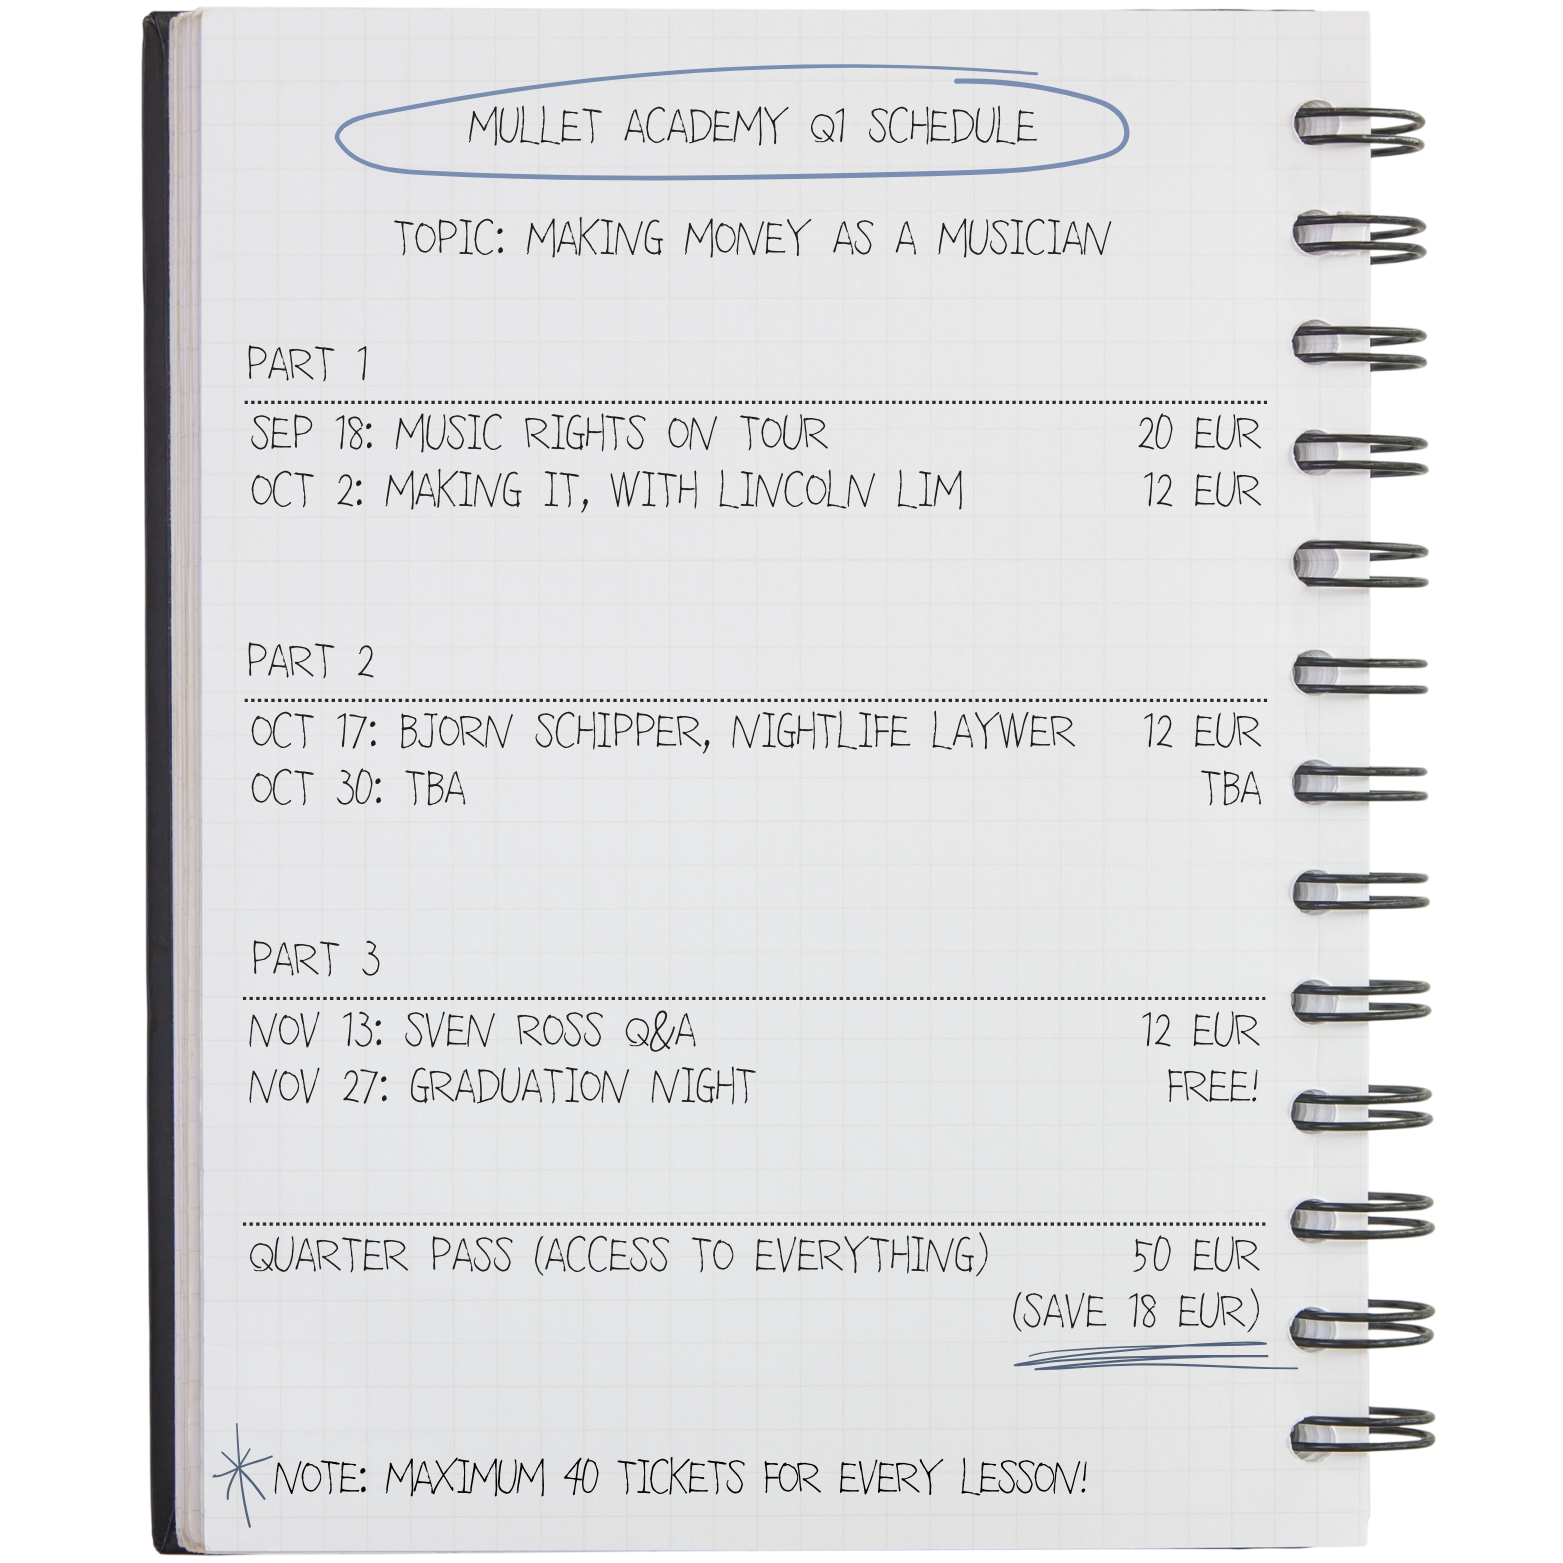 MULLET ACADEMY Q1 SCHEDULE
TOPIC: MAKING MONEY AS A MUSICIAN
PART 1
SEP 18: MUSIC RIGHTS ON TOUR 20 EUR
OCT 2: MAKING IT, WITH LINCOLN LIM 12 EUR
PART 2
OCT 17: BJORN SCHIPPER, NIGHTLIFE LAYWER 12 EUR
OCT 30: TBA TBA
PART 3
NOV 13: SVEN ROSS Q&A 12 EUR
NOV 27: GRADUATION NIGHT FREE!
QUARTER PASS (ACCESS TO EVERYTHING) 50 EUR
(SAVE 18 EUR)
NOTE: MAXIMUM 40 TICKETS FOR EVERY LESSON!